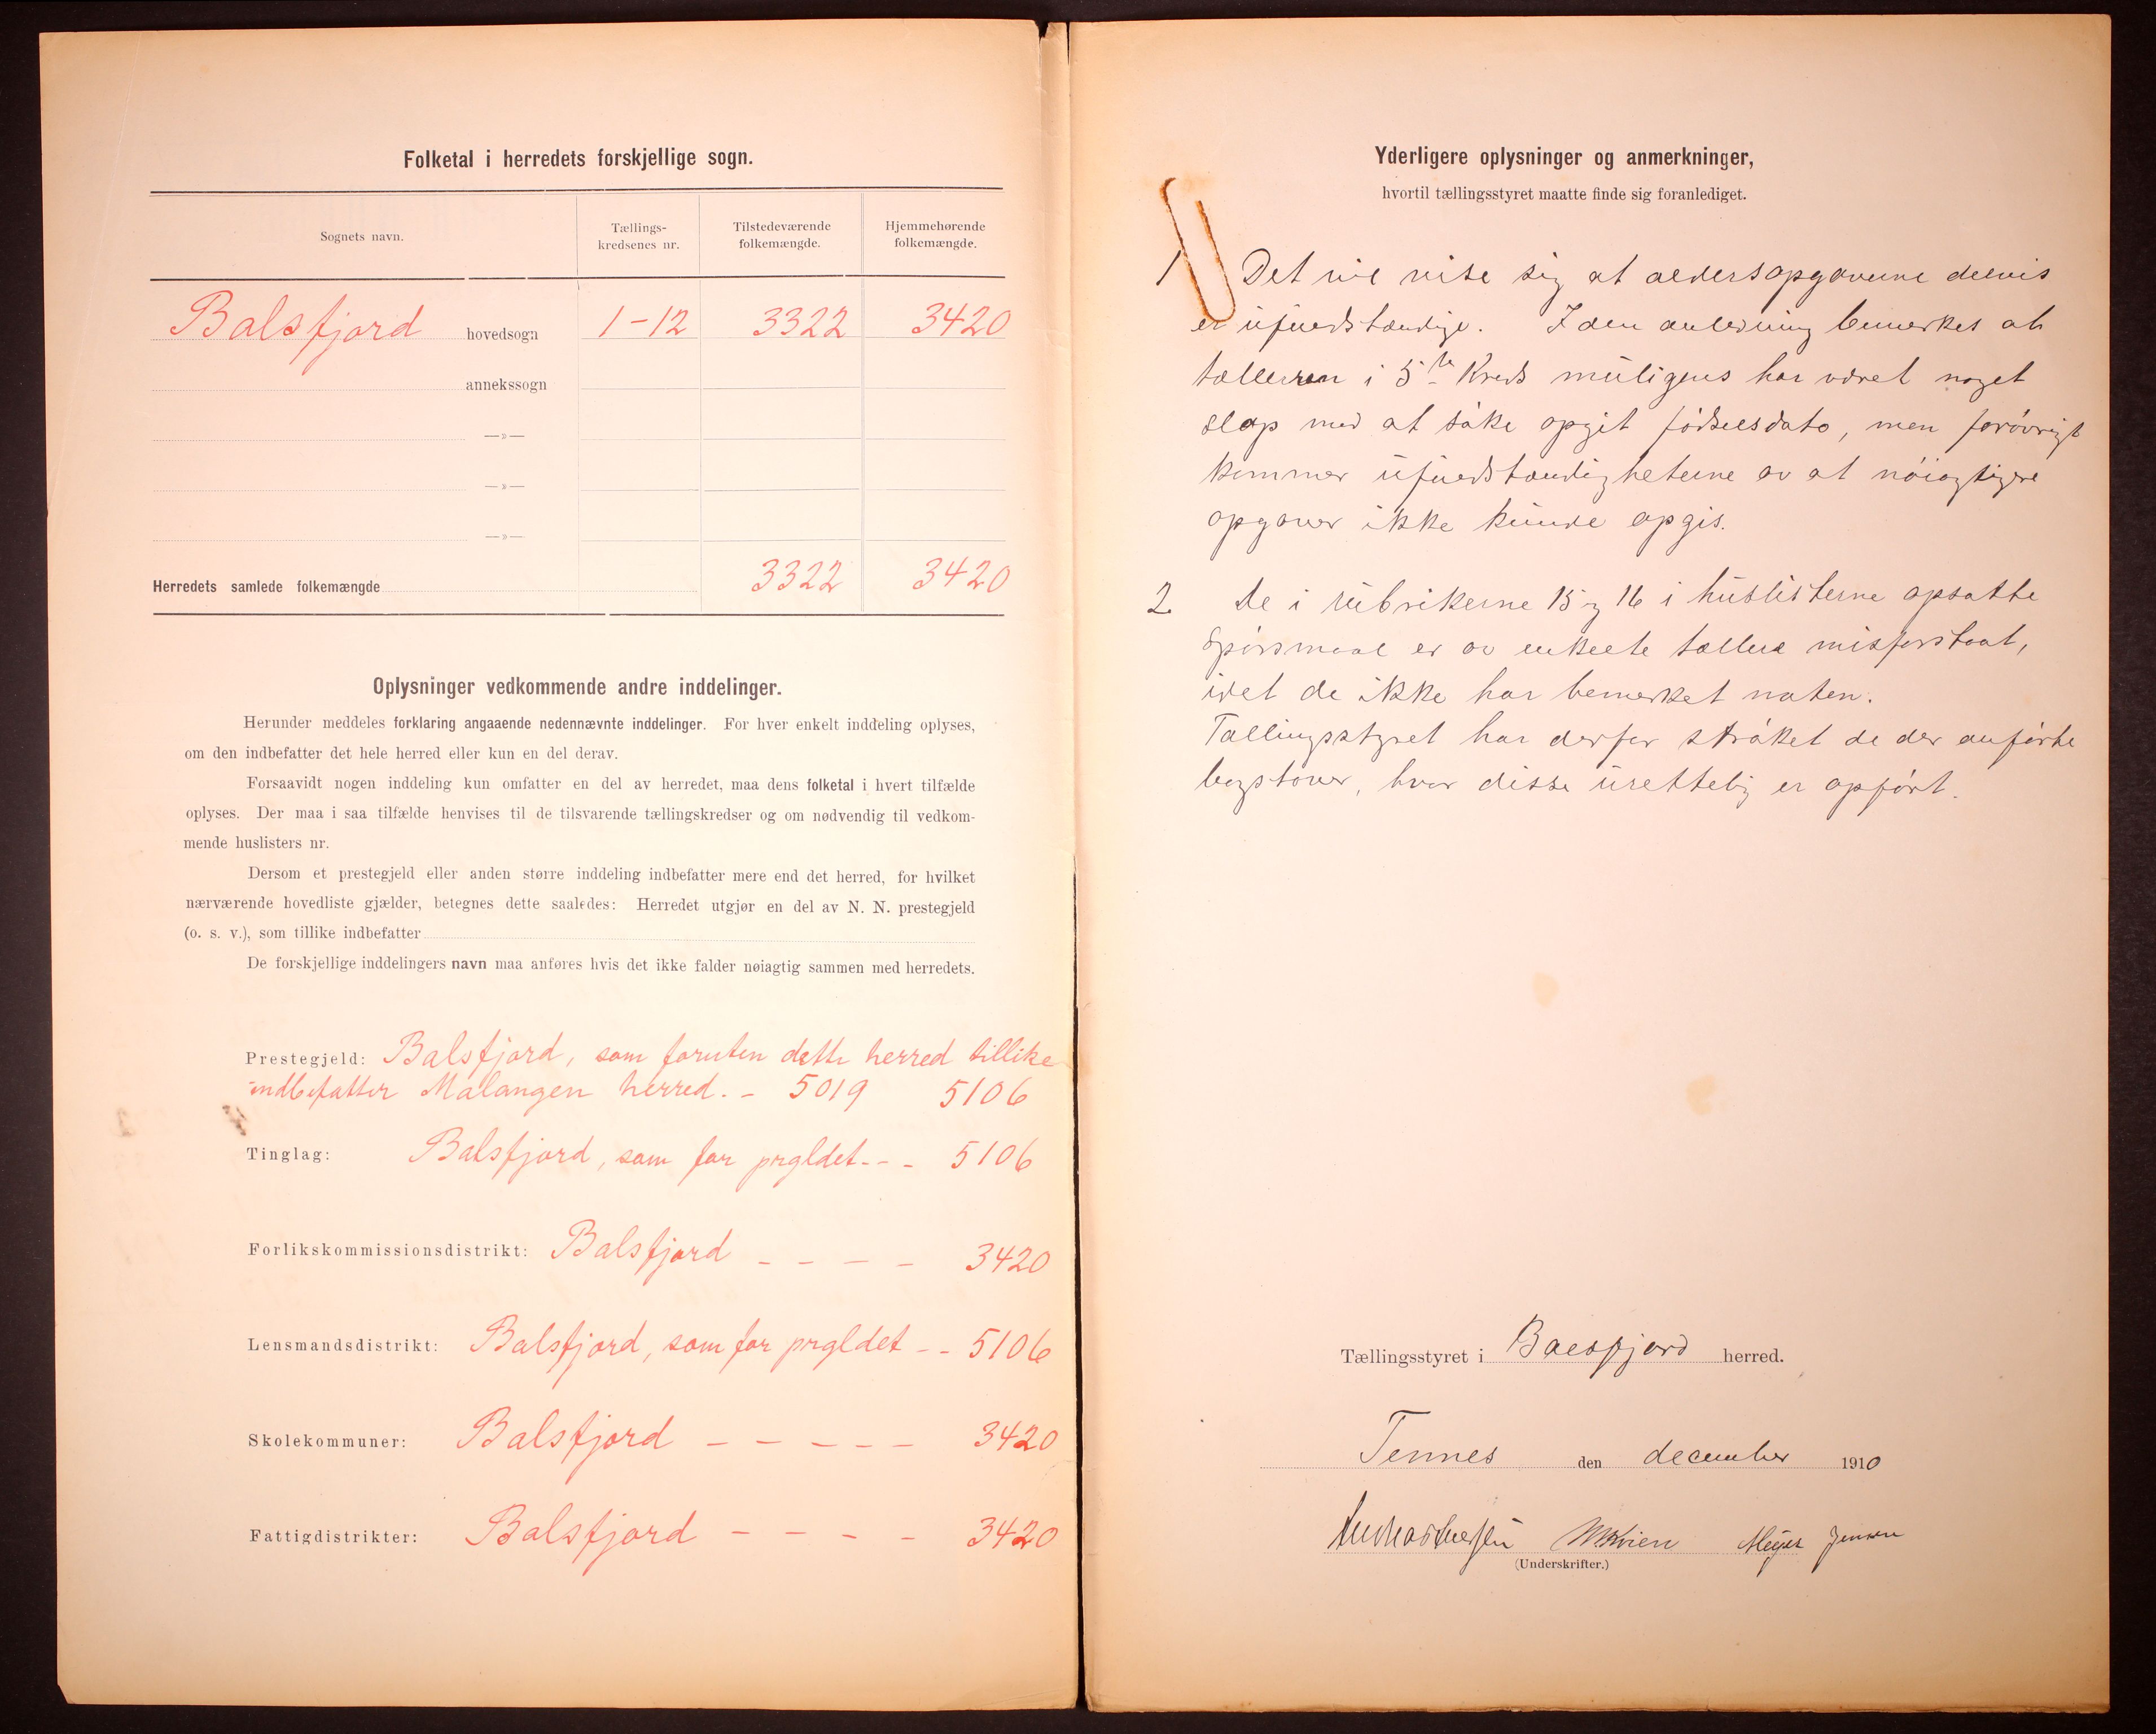 Folketal i herredets forskjellige sogn.
Sognets navn.
Tællings-
kredsenes nr.
Tilstedeværende
folkemængde.
Hjemmehørende
folkemængde.
Balsfjord hovedsogn 1-12 3322 3420
annekssogn
—»—
—»—
—»—
Herredets samlede folkemængde 3322 3420
Oplysninger vedkommende andre inddelinger.
Herunder meddeles forklaring angaaende nedennævnte inddelinger. For hver enkelt inddeling oplyses,
om den indbefatter det hele herred eller kun en del derav.
Forsaavidt nogen inddeling kun omfatter en del av herredet, maa dens folketal i hvert tilfælde
oplyses. Der maa i saa tilfælde henvises til de tilsvarende tællingskredser og om nødvendig til vedkom-
mende huslisters nr.
Dersom et prestegjeld eller anden større inddeling indbefatter mere end det herred, for hvilket
nærværende hovedliste gjælder, betegnes dette saaledes: Herredet utgjør en del av N. N. prestegjeld
(o. s. v.), som tillike indbefatter
De forskjellige inddelingers navn maa anføres hvis det ikke falder nøiagtig sammen med herredets.
Prestegjeld: Balsfjord, som foruten dette herred tillike
indbefatter Malangen herred. - 5019 5106
Tinglag: Balsfjord, som for prgldet - - - 5106
Forlikskommissionsdistrikt: Balsfjord - - - - 3420
Lensmandsdistrikt: Balsfjord, som for prgldet - - 5106
Skolekommuner: Balsfjord - - - - - 3420
Fattigdistrikter: Balsfjord - - - - 3420
Yderligere oplysninger og anmerkninger,
hvortil tællingsstyret maatte finde sig foranlediget.
1 Det vil vise sig at aldersopgaverne delvis
er ufuldstændige. I den anledning bemerkes at
tælleren i 5te Kreds muligens har været noget
slap med at søke opgit fødselsdato, men forøvrigt
kommer ufuldstændigheterne av at nøiagtigere
opgaver ikke kunde opgis.
2. De i rubrikerne 15 og 16 i huslisterne opsatte
spørsmaal er av enkelte tællere misforstaat,
idet de ikke har bemerket noten.
Tællingsstyret har derfor strøket de der anførte
bogstaver, hvor disse urettelig er opført.
Tællingsstyret i Balsfjord herred.
Tennes den december 1910
Meyer Jensen
(Underskrifter.)